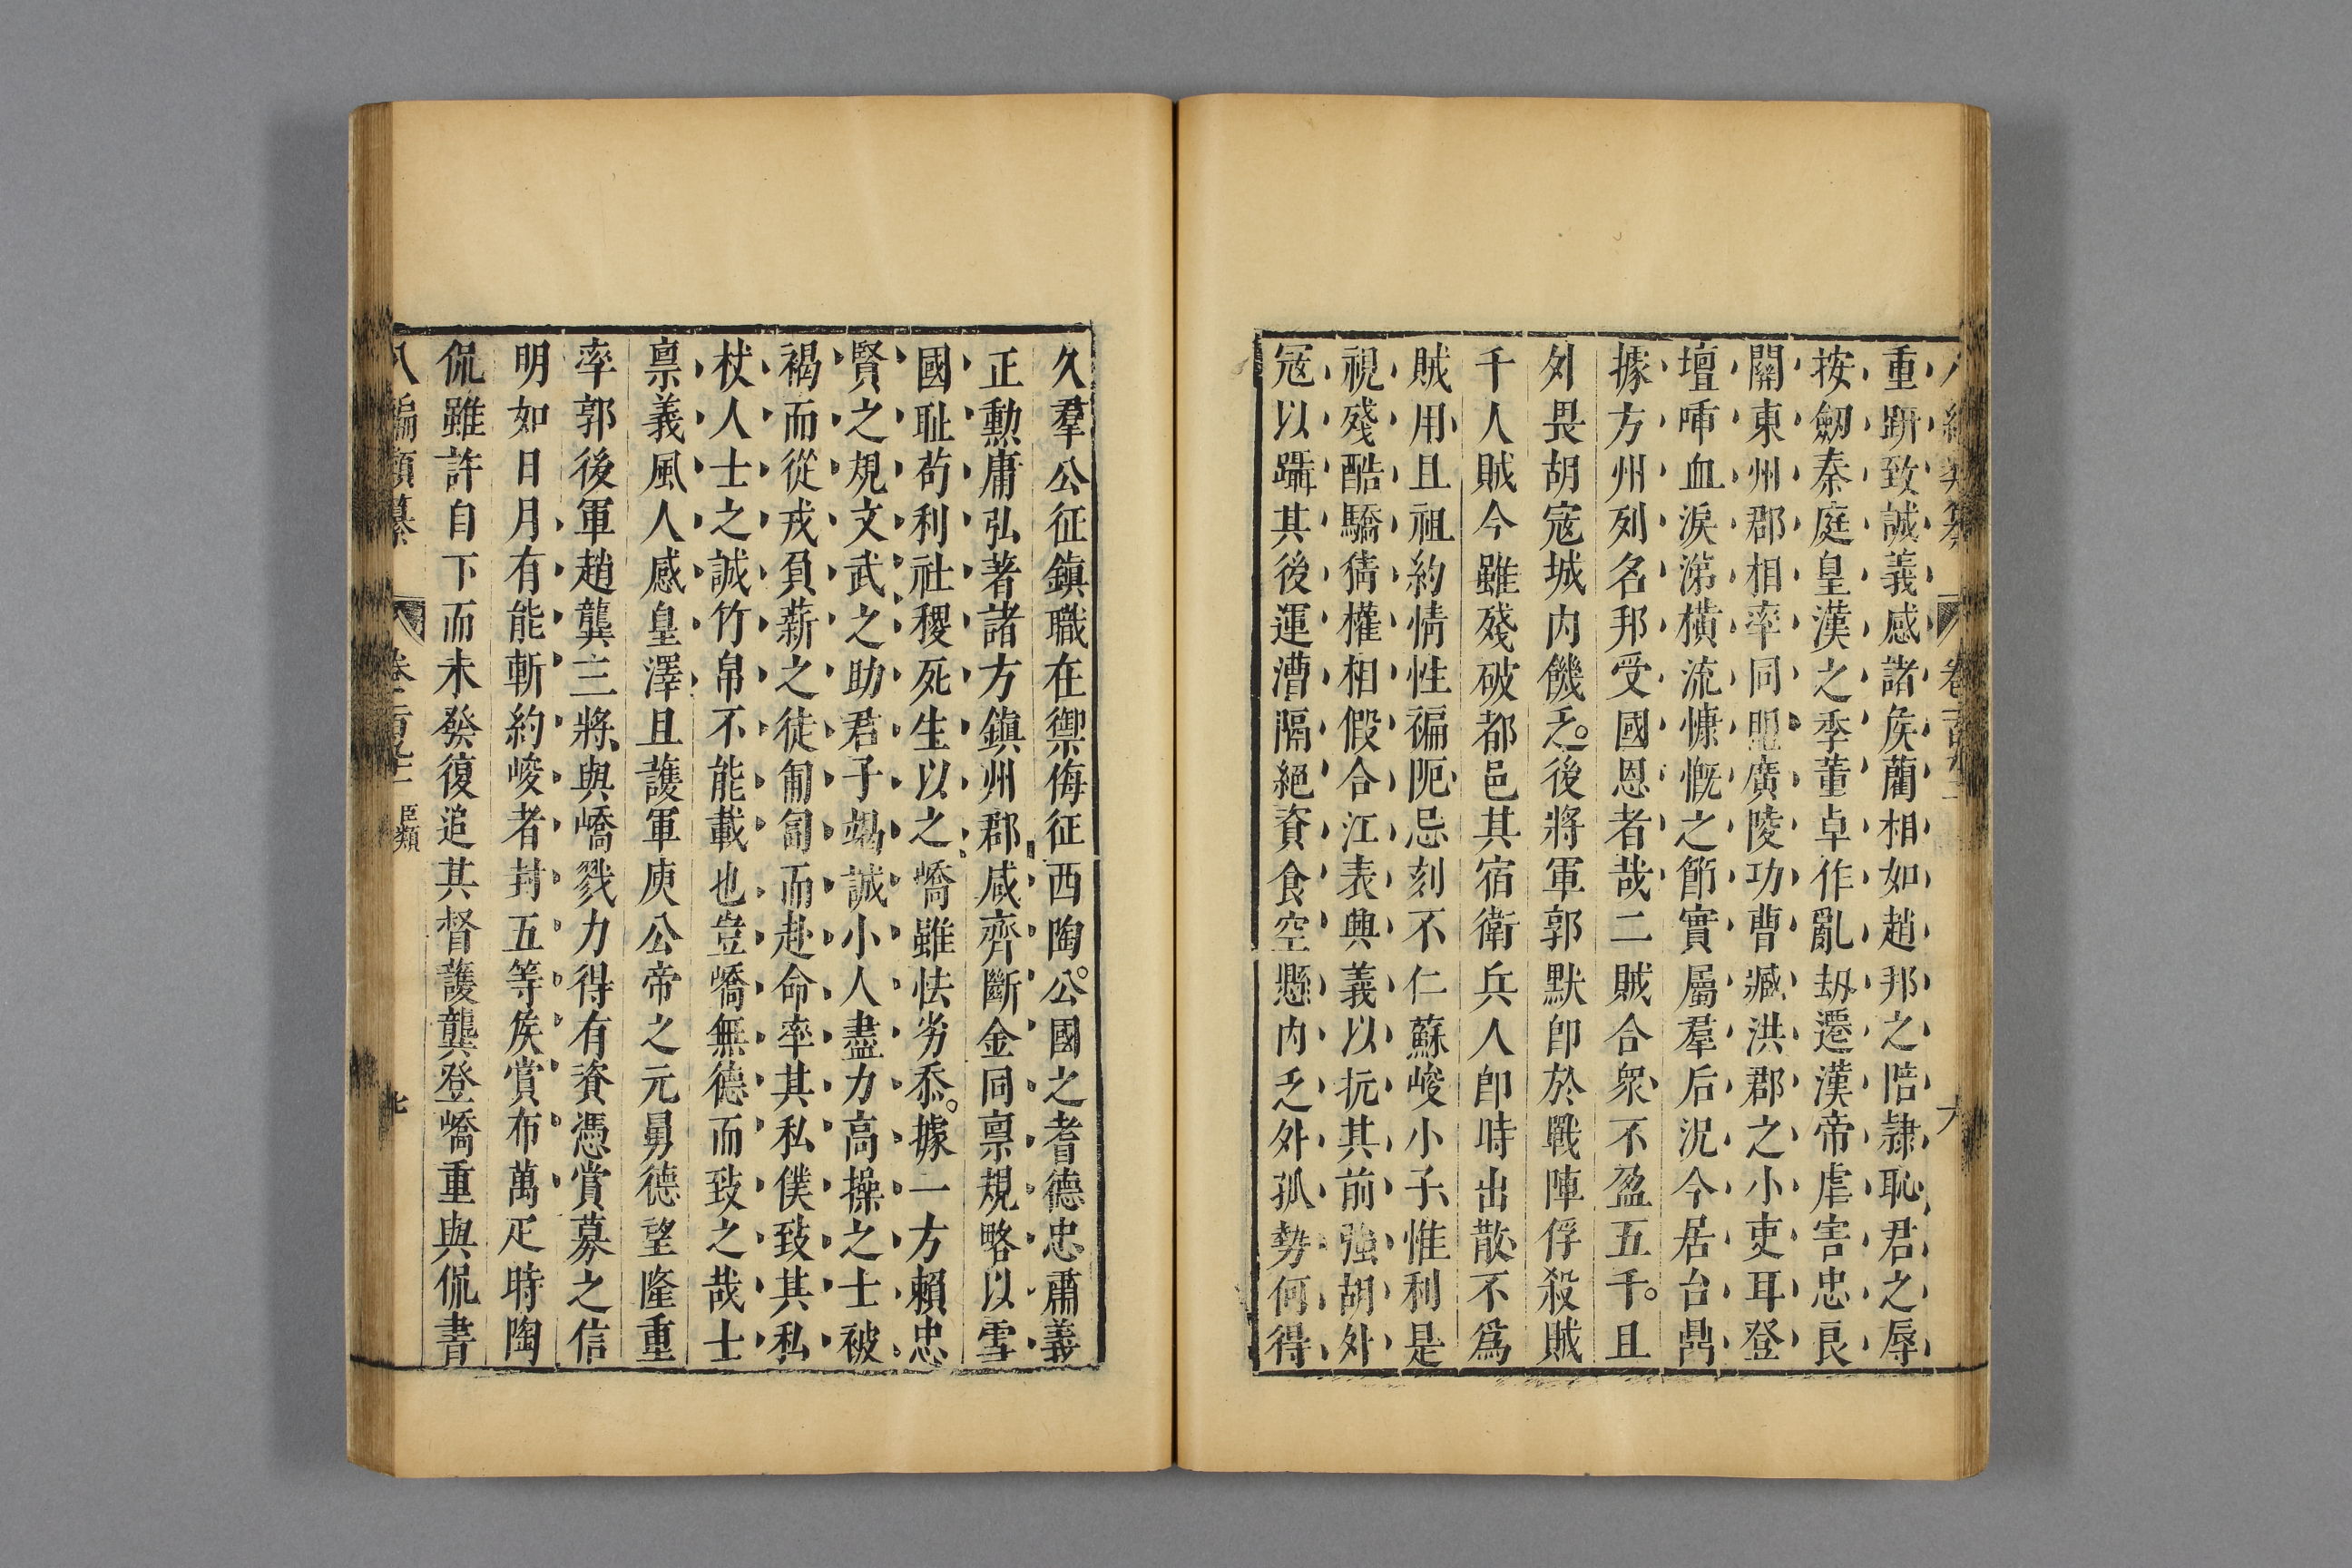 重趼致誠義感諸矦藺相如趙邦之陪隷恥君之辱
按劒秦庭皇漢之季董卓作亂刼遷漢帝虐害忠良
關東州郡相率同盟廣陵功曹臧洪郡之小吏耳登
壇唾血淚涕橫流慷慨之節實屬羣后况今居台鼎
據方州列名邦受國恩者哉二賊合衆不盈五千且
外畏胡寇城内饑乏後將軍郭默卽於戰陣俘殺賊
千人賊今雖殘破都邑其宿衛兵人卽時出散不爲
賊用且祖約情性褊阨忌刻不仁蘇峻小子惟利是
視殘酷驕猜權相假合江表興義以抗其前強胡外
寇以躡其後運漕隔絕資食空懸内乏外孤勢何得
久羣公征鎮職在禦侮征西陶公國之耆德忠肅義
正勲庸弘著諸方鎮州郡咸齊斷金同禀規略以雪
國耻苟利社稷死生以之嶠雖怯劣忝據一方賴忠
賢之規文武之助君子竭誠小人盡力高操之士被
褐而從戎負薪之徒匍匐而赴命率其私僕致其私
杖人士之誠竹帛不能載也豈嶠無德而致之哉士
禀義風人感皇澤且護軍庾公帝之元舅德望隆重
率郭後軍趙龔三將與嶠戮力得有資憑賞募之信
明如日月有能斬約峻者封五等矦賞布萬疋時陶
侃雖許自下而未發復追其督護龔登嶠重與侃書
八編類纂 臣類 七